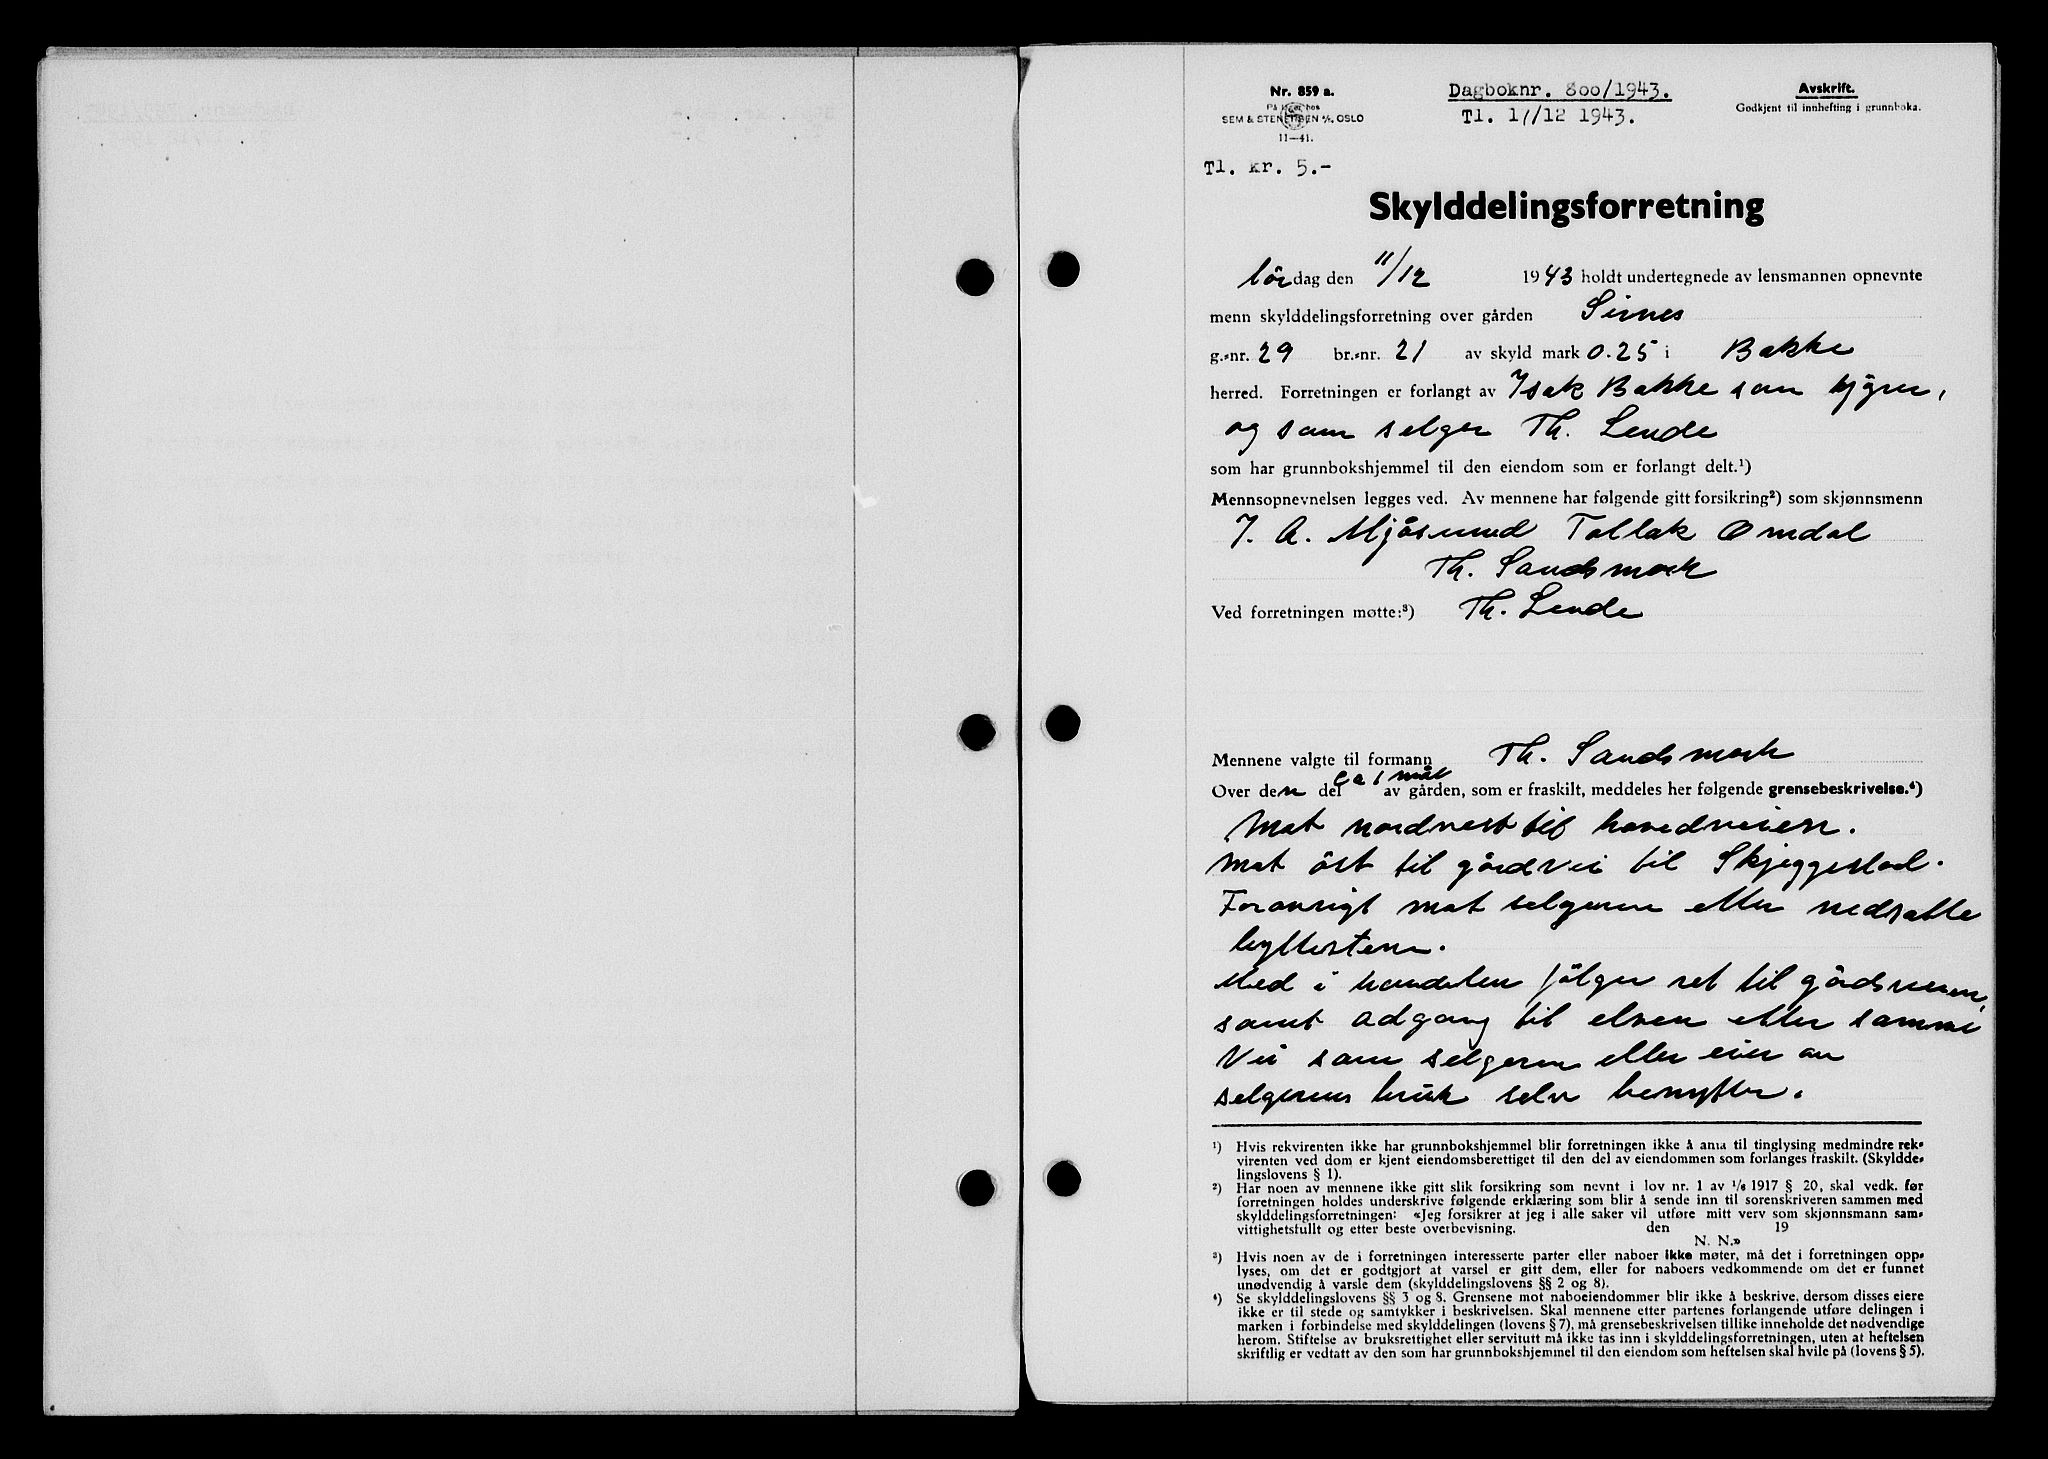 Nr. 859 a.
På lager hos
SEM & STENERSEN A/S, OSLO
11—41.
Dagboknr. 800/1943.
Tl. 17/12 1943.
Avskrift.
Godkjent til innhefting i grunnboka.
Tl. kr. 5.-
Skylddelingsforretning
lördag den 11/12 1943 holdt undertegnede av lensmannen opnevnte
menn skylddelingsforretning over gården Sirnes
g.-nr. 29 br.-nr. 21 av skyld mark 0.25 i Bakke
herred. Forretningen er forlangt av Isak Bakke som kjøper,
og som selger Th. Lende
som har grunnbokshjemmel til den eiendom som er forlangt delt.¹)
Mennsopnevnelsen legges ved. Av mennene har følgende gitt forsikring²) som skjønnsmenn
J. A. Mjåsund Tollak Omdal
Th. Sandsmark
Ved forretningen møtte:³) Th. Lende
Mennene valgte til formann Th. Sandsmark
ca 1 mål
Over den del av gården, som er fraskilt, meddeles her følgende grensebeskrivelse.⁴)
Mot nordvest til hovedveien.
Mot öst til gårdvei til Skjeggestad.
Forövrigt mot selgeren etter nedsatte
byttestene.
Med i handelen fölger ret til gårdsveien,
samt adgang til elven etter samme
vei som selgeren eller eier av
selgerens bruk selv benytter.
¹) Hvis rekvirenten ikke har grunnbokshjemmel blir forretningen ikke å anta til tinglysing medmindre rek-
virenten ved dom er kjent eiendomsberettiget til den del av eiendommen som forlanges fraskilt. (Skyldde-
lingslovens § 1).
²) Har noen av mennene ikke gitt slik forsikring som nevnt i lov nr. 1 av 1/6 1917 § 20, skal vedk. før
forretningen holdes underskrive følgende erklæring som blir å sende inn til sorenskriveren sammen med
skylddelingsforretningen: «Jeg forsikrer at jeg i alle saker vil utføre mitt verv som skjønnsmann sam-
vittighetsfullt og etter beste overbevisning. den 19
N. N.»
³) Hvis noen av de i forretningen interesserte parter eller naboer ikke møter, må det i forretningen opp-
lyses, om det er godtgjort at varsel er gitt dem, eller for naboers vedkommende om det er funnet
unødvendig å varsle dem (skylddelingslovens §§ 2 og 8).
⁴) Se skylddelingslovens §§ 3 og 8. Grensene mot naboeiendommer blir ikke å beskrive, dersom disses eiere
ikke er til stede og samtykker i beskrivelsen. Skal mennene etter partenes forlangende utføre delingen i
marken i forbindelse med skylddelingen (lovens § 7), må grensebeskrivelsen tillike inneholde det nødvendige
herom. Stiftelse av bruksrettighet eller servitutt må ikke tas inn i skylddelingsforretningen, uten at heftelsen
skriftlig er vedtatt av den som har grunnbokshjemmel til den eiendom som heftelsen skal hvile på (lovens § 5).